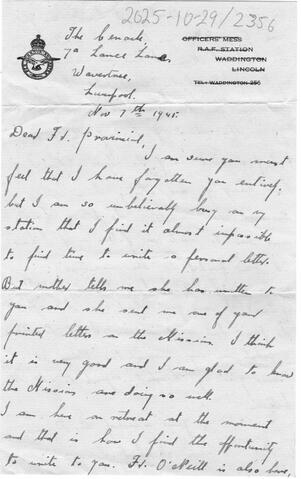 2025-10-29/2356
OFFICERS' MESS
R.A.F. STATION
WADDINGTON
LINCOLN
TEL: WADDINGTON 256
The Cenacle,
7a Lance Lane,
Wavertree,
Liverpool.
Nov 7th 1945.
Dear Fr. Provincial,
I am sure you must
feel that I have forgotten you entirely,
but I am so unbelievably busy on my
station that I find it almost impossible
to find time to write a personal letter.
But mother tells me she has written to
you and she sent me one of your
printed letters on the Mission. I think
it is very good and I am glad to know
the Missions are doing so well.
I am here on retreat at the moment
and that is how I find the opportunity
to write to you. Fr. O'Neill is also here,